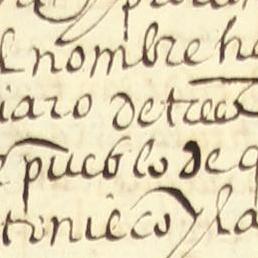 l nombre he
iaro de trece
e pueblo de q
tonie co y la